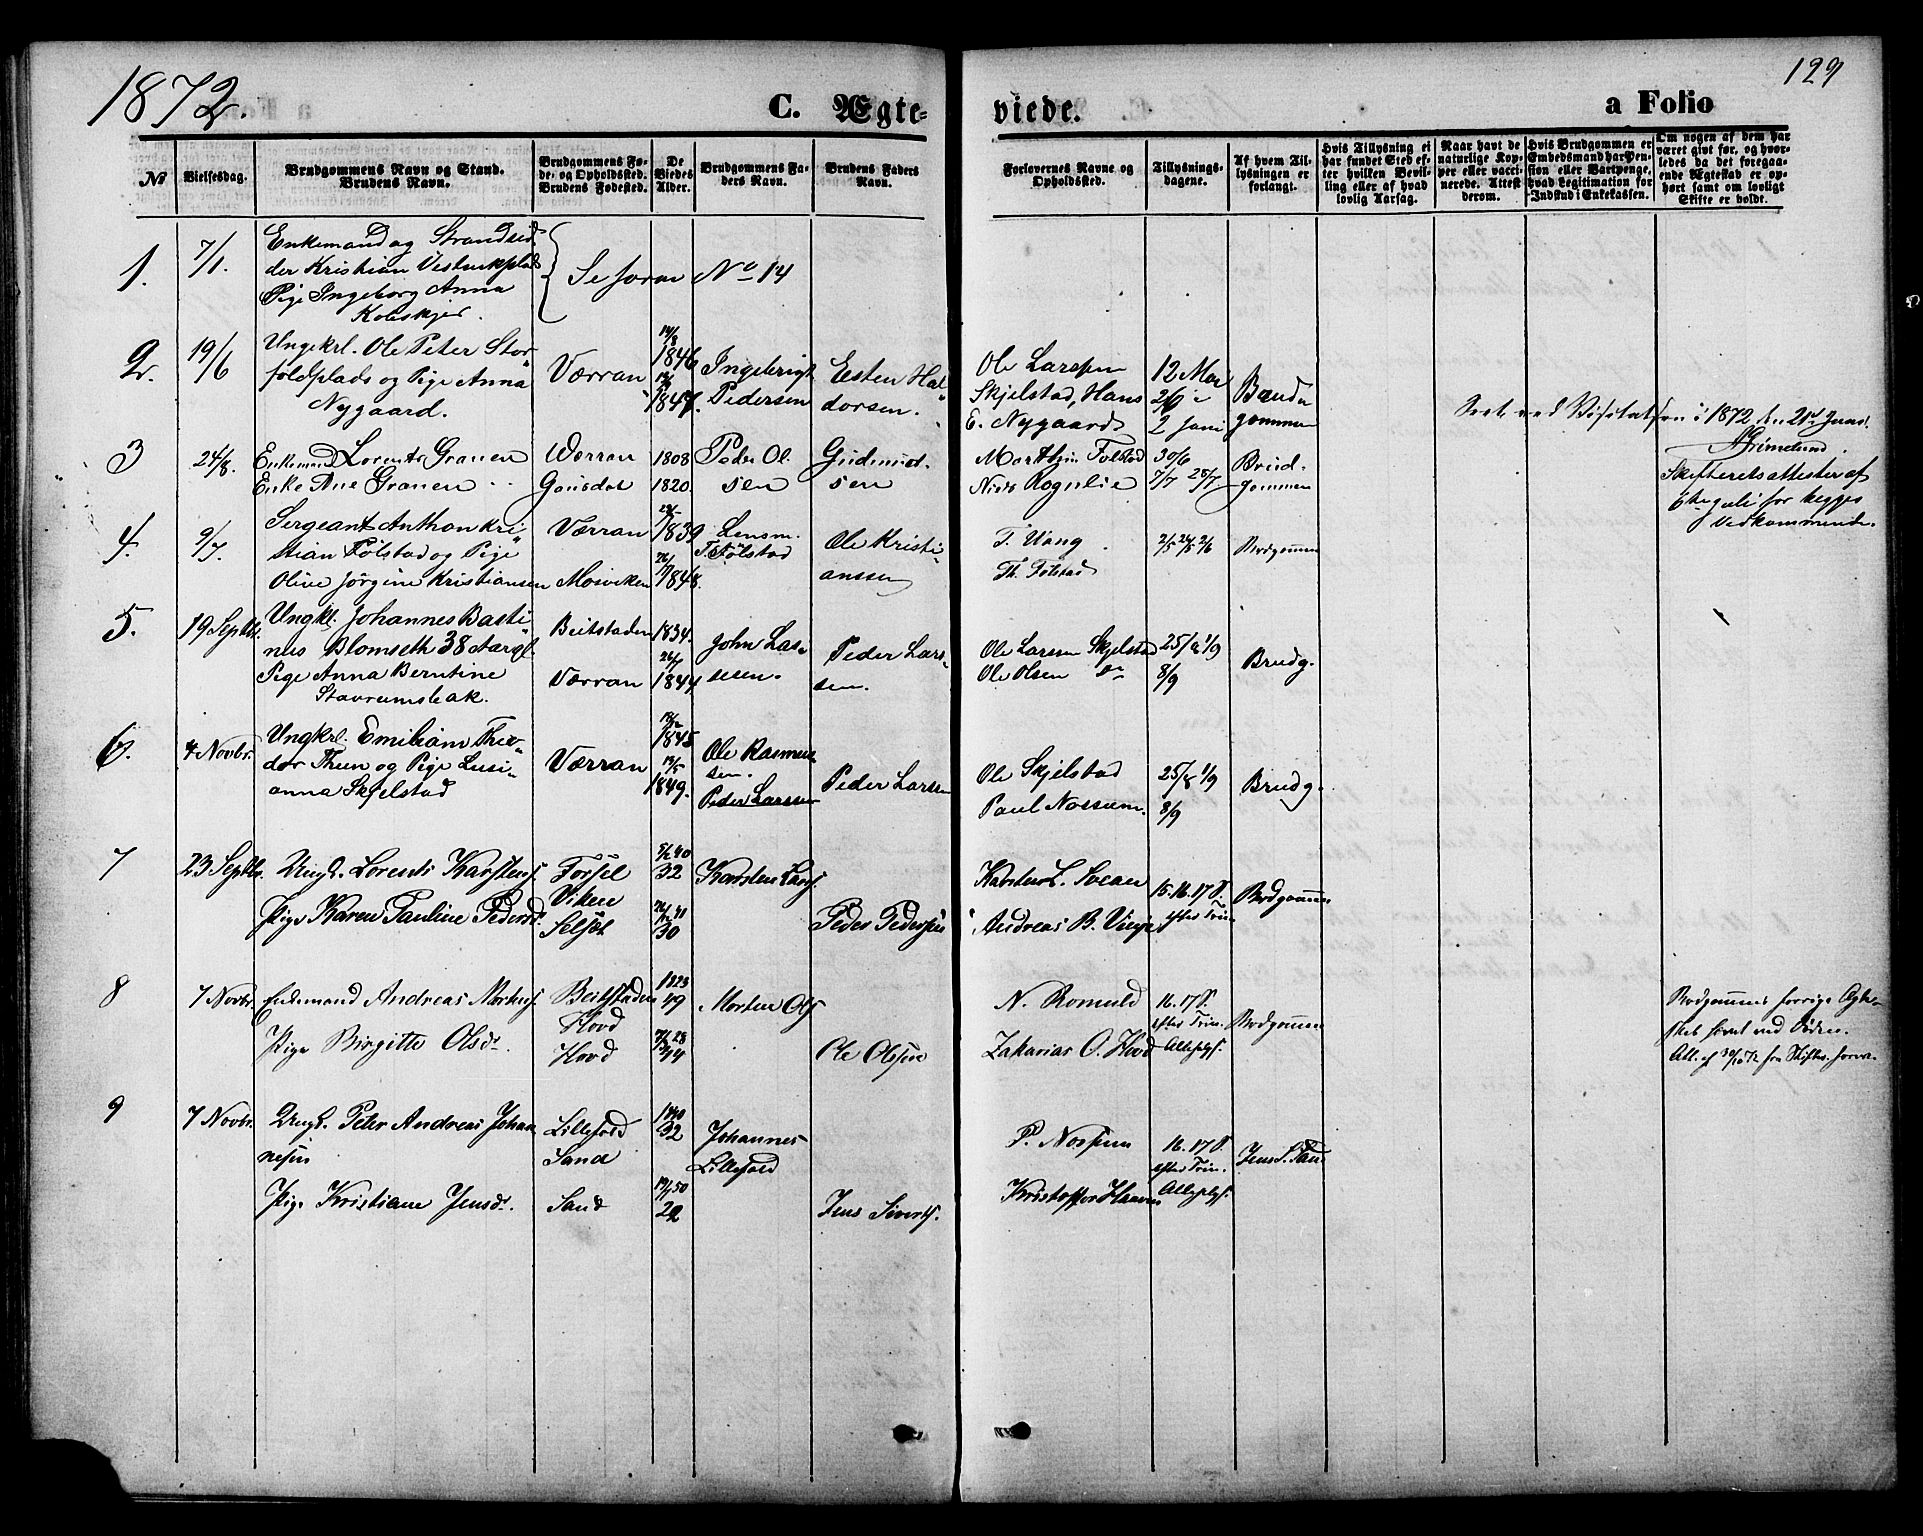 1872.
129
C. Ægte-
viede.
a Folio
No
Vielsesdag.
Brudgommens Navn og Stand.
Brudens Navn.
Brudgommens Fø-
de- og Opholdssted.
Brudens Fødested.
De
Viedes
Alder.
Brudgommens Fa-
ders Navn.
Brudens Faders
Navn.
Forlovernes Navne og
Opholdssted.
Tillysnings-
dagene.
Af hvem Til-
lysningen er
forlangt.
Hvis Tillysning ei
har fundet Sted ef-
ter hvilken Bevil-
ling eller af hvad
lovlig Aarsag.
Naar havt de
naturlige Kop-
per eller vacci-
nerede. Attest
derom.
Hvis Brudgommen er
Embedsmand har Pen-
sion eller Vartpenge,
hvad Legitimation for
Indskud i Enkekassen.
Om nogen af dem har
været givt før, og hvor-
ledes da det foregaa-
ende Ægtestad er op-
hørt samt om lovligt
Skifte er holdt.
1. 7/1. Enkemand og Strandsid
der Kristian
Pige Ingeborg Anna
Se foran No 14
2. 19/6 Ungkrl. Ole Peter Stor-
foldplads og Pige Anna
Nygaard.
Værran
1846
1847.
Ingebrigt
Pedersen
Esten Hal
dorsen.
Ole Larssen
Skjelstad, Hans
E. Nygaard
12 Mai
2 Juni
Brud
gommen
Seet ved Visitatsen i 1872 den 21de Juni.
Grimelund
3 24/8. Enkemand Lorents Granen
Enke Ane Granen
Værran
Gausdal
1808
1820.
Peder Ol.
sen
Gudmund.
sen
Morthin Folstad
Niels Rognlie
30/6
7/7 28/7
Brud.
gommen
Skifteretsattester af
for begges
Vedkommende.
4. 9/7. Sergeant Anthon Kri
stian Følstad og Pige
Olive Jørgine Kristiansen
Værran
Mosviken
1839
1848.
Lensm.
Følstad
Ole Kristi
anssen
T. Vang
Th. Følstad
2/5 24/5 2/6
Brudgommen
5. 19 Septbr. Ungkl. Johannes Basti
nus Blomseth 38 Aargl.
Pige Anna Berntine
Stavrumsbak.
Beitstaden
Værran
1834.
26/7
1844
John Las
sesen.
Peder Lars-
sen.
Ole Larssen Skjelstad
Ole Olsen do
25/8 1/9
8/9
Brudg.
6. 4 Novbr. Ungkrl. Emilian Theo-
dor Thun og Pige Lusi-
anna Skjelstad
Værran
1845
1849.
Ole Rasmus
sen.
Peder Larssen
Peder Larssen
Ole Skjelstad
Paul Nossum.
25/8 1/9
8/9
Brudg.
7 23 Septbr. Ungk. Lorents Karstens.
Pige Karen Pauline Pedersd.
Viken
40
32
41
30
Karsten Lars.
Peder Pedersen
Karsten L. Svean
Andreas B.
15. 16. 17 S.
efter Trin.
Brudgommen
8 7 Novbr. Enkemand Andreas Mortens.
Pige Birgitte Olsdr.
Beitstaden
Hovd
Hovd
1823
49
28
44
Morten Ols
Ole Olsen
N. Romuld
Zakarias O. Hovd
16. 17 S.
efter Trin.
Brudgommen
Brudgommens forrige Ægte-
skab hævet ved Døden.
9 7 Novbr. Ungk. Peter Andreas Johan
nesen
Pige Kristiane Jensdr.
Lillefold
Sand
Sand
1840
32
50
22
Johannes
Lillefold
Jens Siverts.
P. Nossum
Kristoffer Haavn
16. 17 S.
efter Trin.
Jens S. Sand